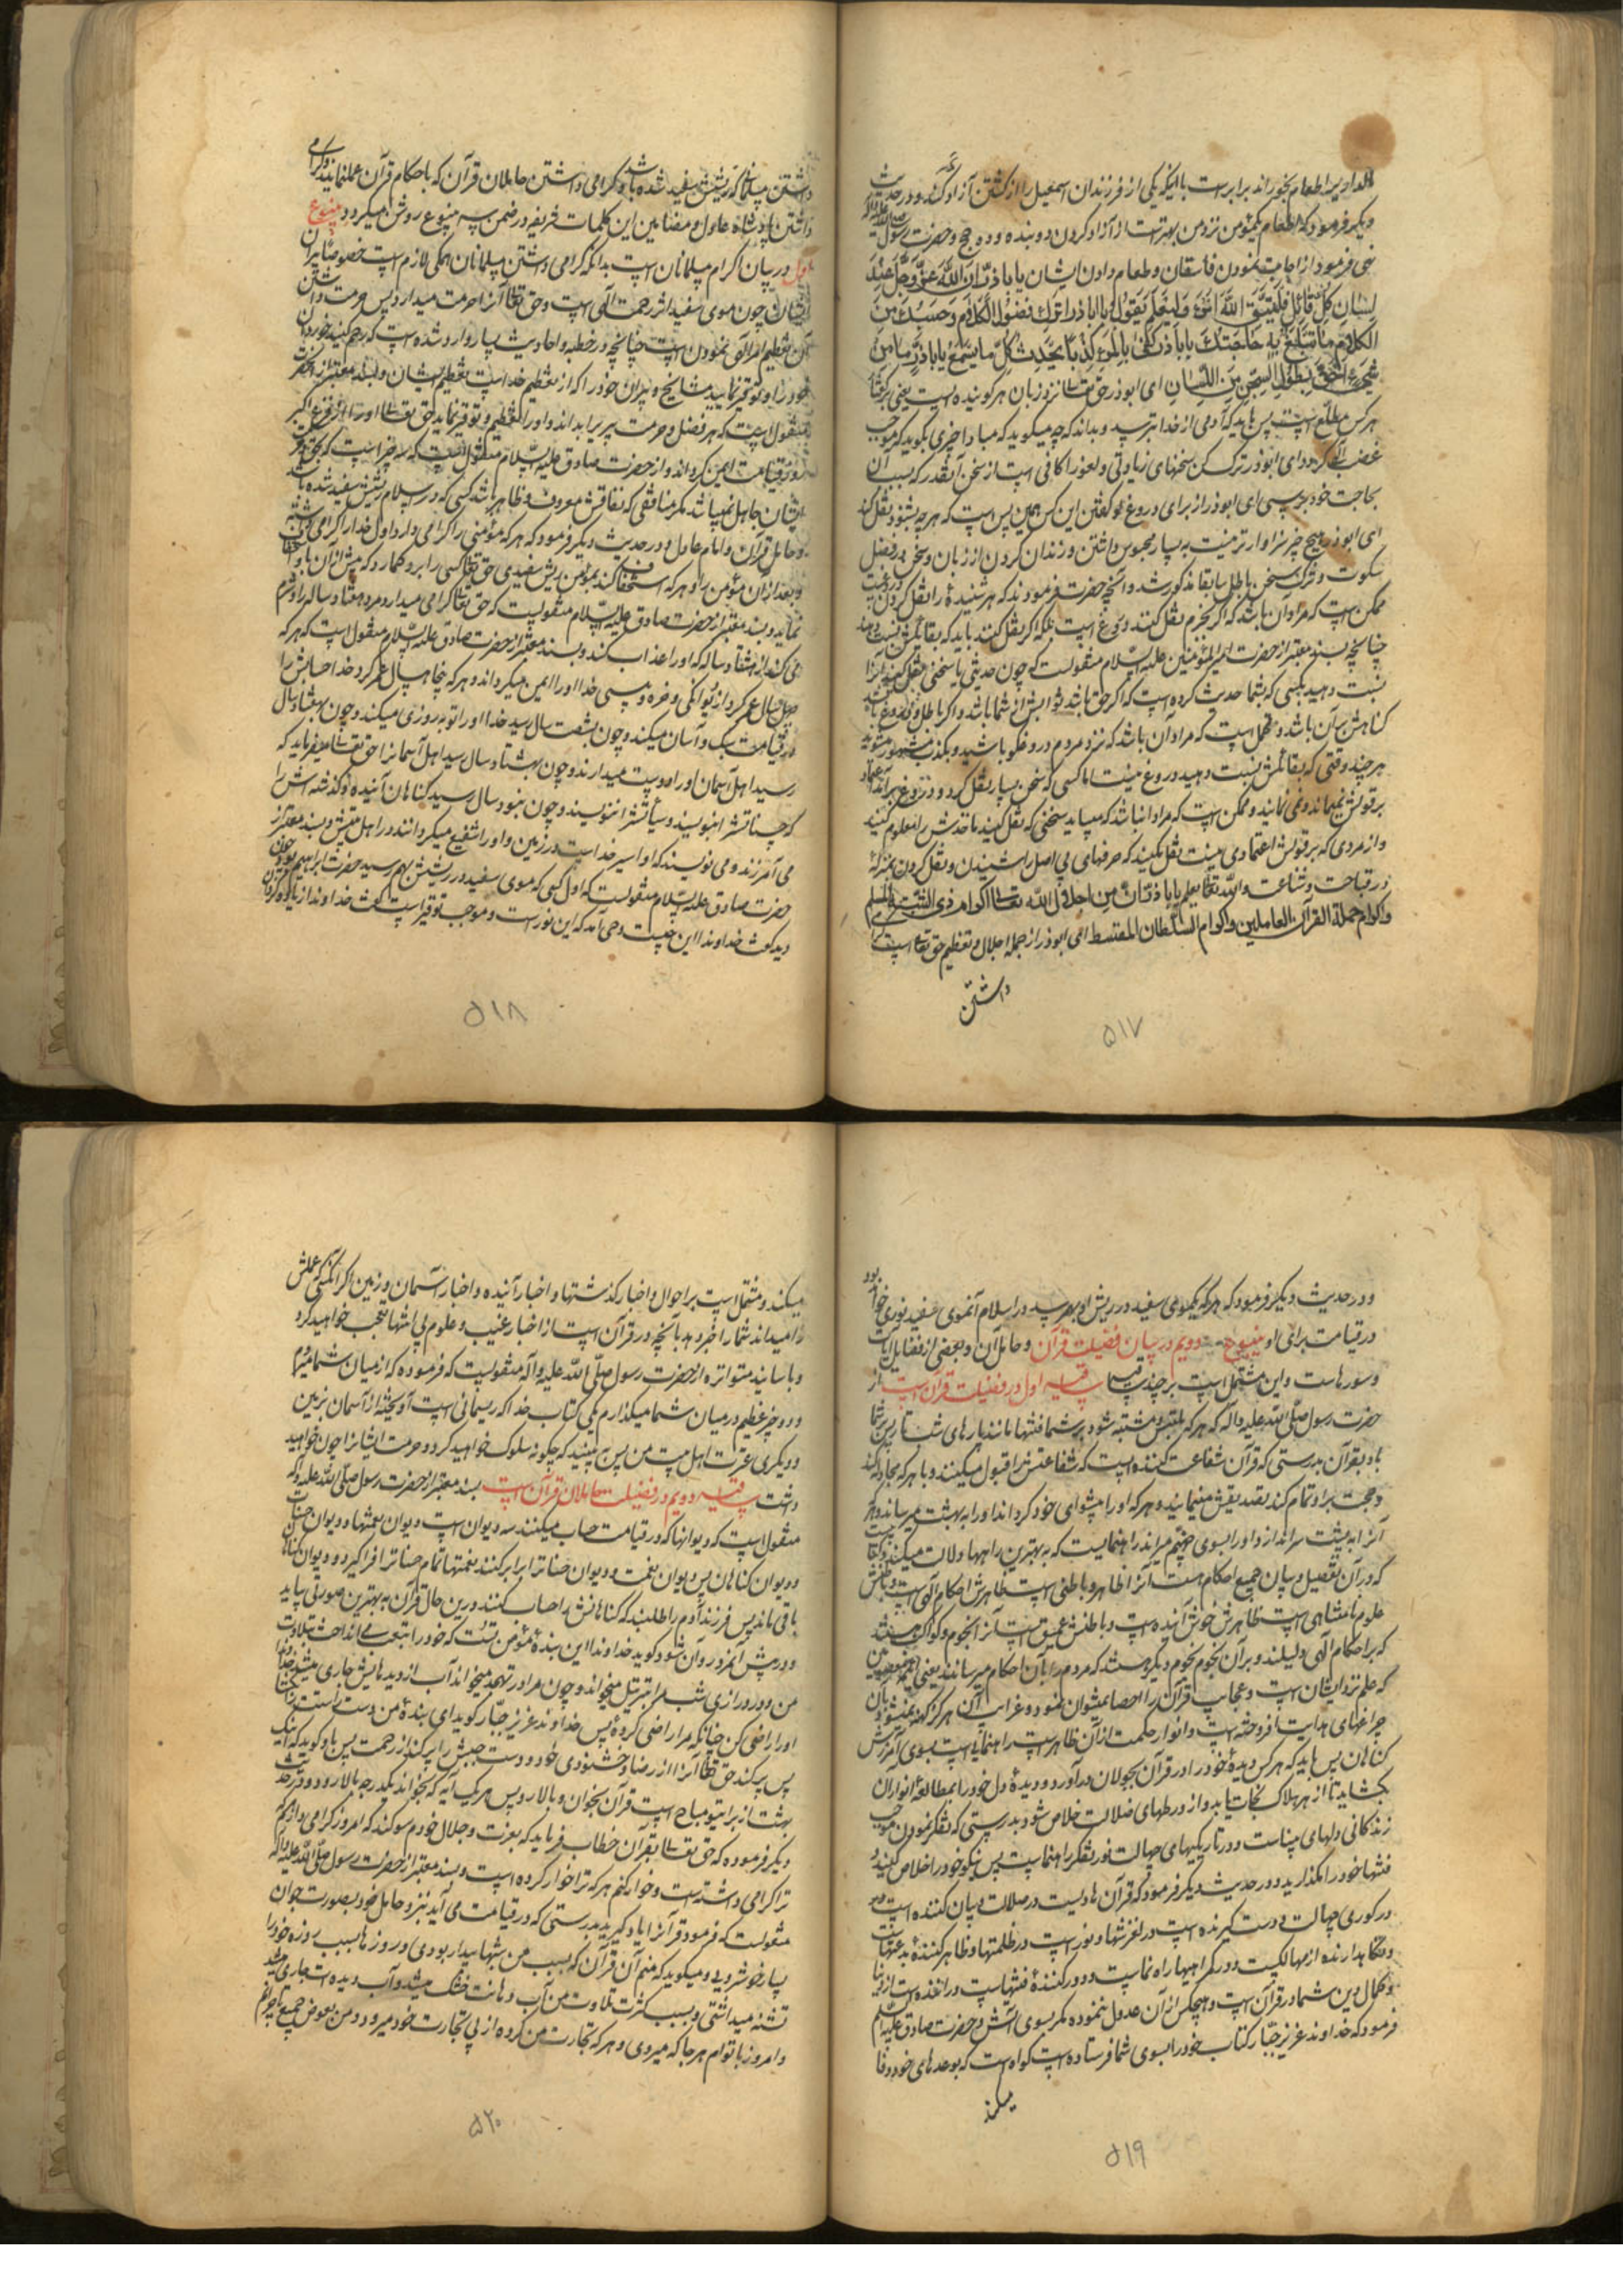 او را سیر اطعام بخوراند برابرست با اینکه یکی از فرزندان اسمعیل را از کشتن آزاد کند و در حدیث
دیگر فرمود که اطعام یکمؤمن نزد من بهتر است از آزاد کردن ده بنده و ده حج و حضرت رسول صلی الله علیه و آله
نهی فرمود از اجابت نمودن فاسقان و طعام دادن ایشان یا اباذر ان الله عز و جل عند
لسان کل قائل فلیتق الله امرء و لیعلم ما یقول یا اباذر اترک فضول الکلام و حسبک من
الکلام ما تبلغ به حاجتک یا اباذر کفی بالمرء کذبا ان یحدث بکل ما یسمع یا اباذر ما من
شیء احق بطول السجن من اللسان ای ابوذر حق تعالی نزد زبان هر گوینده است یعنی بر گفتار
هر کس مطلع است پس باید که آدمی از خدا بترسد و بداند که چه میگوید که مبادا چیزی بگوید که موجب
غضب الهی گردد ای ابوذر ترک کن سخنهای زیادتی و لغو را کافی است از سخن آنقدر که بسبب آن
بحاجت خود برسی ای ابوذر از برای دروغ گو گفتن این کس همین بس است که هر چه بشنود نقل کند
ای ابوذر هیچ چیز سزاوارتر نیست به بسیار محبوس داشتن و زندان کردن از زبان و سخن در فضل
سکوت و ترک سخن باطل سابقا مذکور شد و آنچه حضرت فرمودند که هر شنیده را نقل کردن دروغست
ممکن است که مراد آن باشد که اگر بجزم نقل کنند دروغ است بلکه اگر نقل کنند باید که بقائلش نسبت دهند
چنانچه بسند معتبر از حضرت امیر المؤمنین علیه السلام منقولست که چون حدیثی یا سخنی نقل کنید آنرا
نسبت دهید بکسی که بشما حدیث کرده است که اگر حق باشد ثوابش از شما باشد و اگر باطل و دروغ باشد
گناهش بر آن باشد و محتمل است که مراد آن باشد که نزد مردم دروغگو باشید و بکذب مشهور میشوید
هر چند وقتی که بقائلش نسبت دهید دروغ نیست اما کسی که سخن بسیار نقل کرد و دروغ برآمد اعتماد
بر قولش نمیماند و نمی نمایند و ممکن است که مراد این باشد که میباید سخنی که نقل کنید ماخذش را معلوم کنید
و از مردی که بر قولش اعتمادی نیست نقل نکنید که حرفهای بی اصل را شنیدن و نقل کردن بمنزله
در قباحت و شناعت و الله تعالی یعلم یا اباذر ان من اجلال الله تعالی اکرام ذی الشیبة المسلم
و اکرام حملة القرآن العاملین و اکرام السلطان المقسط ای ابوذر از جمله اجلال و تعظیم حق تعالی است گرامی
داشتن
۵۱۷
داشتن مسلمانی که ریشش سفید شده باشد و گرامی داشتن حاملان قرآن که باحکام قرآن عمل نمایند و گرامی
داشتن پادشاه عادل و مضامین این کلمات شریفه در ضمن سه ینبوع روشن میگردد ینبوع
اول در بیان اکرام مسلمانان است بدانکه گرامی داشتن مسلمانان همگی لازم است خصوصا پیران
ایشان چون موی سفید اثر رحمت الهی است و حق تعالی آنرا حرمت میدارد پس حرمت داشتن
آن تعظیم امر الهی نمودن است چنانچه در خطبه و احادیث بسیار وارد شده است که رحم کنید خوردان
خود را و توقیر نمایید مشایخ و پیران خود را که از تعظیم خداست تعظیم ایشان و بسند معتبر از آنحضرت
منقول است که هر که فضل و حرمت پیر بر ابداند و او را تعظیم و توقیر نماید حق تعالی او را از فزع اکبر
روز قیامت ایمن گرداند و از حضرت صادق علیه السلام منقول است که سه چیز است که بحق و حرمت
ایشان جاهل نمیباشد مگر منافقی که نفاقش معروف و ظاهر باشد کسی که در اسلام ریشش سفید شده باشد
و حامل قرآن و امام عادل و در حدیث دیگر فرمود که هر که مؤمنی را گرامی دارد اول خدا را گرامی داشته
و بعد از آن مؤمن را و هر که استخفاف کند بمؤمن ریش سفیدی حق تعالی کسی را بر او گمارد که پیش از آن باو استخفاف
نماید و بسند معتبر از حضرت صادق علیه السلام منقولست که حق تعالی گرامی میدارد مرد هفتاد ساله را و شرم
می کند از هشتاد ساله که او را عذاب کند و بسند معتبر از حضرت صادق علیه السلام منقول است که هر که
چهل سال عمر کرد از دیوانگی و خوره و پیسی خدا او را ایمن میگرداند و هر که پنجاه سال عمر کرد خدا حسابش را
در قیامت سبک و آسان میکند و چون بشصت سال رسید خدا او را توبه روزی میکند و چون بهفتاد سال
رسید اهل آسمان او را دوست میدارند و چون بهشتاد سال رسید اهل آسمان را حق تعالی میفرماید که
که حسناتش را بنویسید و سیئاتش را ننویسید و چون بنود سال رسید گناهان آینده و گذشته اش را
می آمرزند و می نویسند که او اسیر خداست در زمین و او را شفیع میگردانند در اهل بیتش و بسند معتبر از
حضرت صادق علیه السلام منقولست که اول کسی که موی سفید در ریشش بهم رسید حضرت ابراهیم بود چون
دید گفت خداوندا این چیست وحی آمد که این نور است و موجب توقیر است گفت خداوندا زیاده گردان
۵۱۸
و در حدیث دیگر فرمود که هر که یکموی سفید در ریش او بهم رسد در اسلام آنموی سفید نوری خواهد بود
در قیامت برای او ینبوع دویم در بیان فضیلت قرآن و حامل آن و بعضی از فضایل آیات
و سورهاست و این مشتمل است بر چند ساقیه ساقیه اول در فضیلت قرآن است از
حضرت رسول صلی الله علیه و آله که هر که ملتبس و مشتبه شود بر شما فتنها مانند پارهای شب تار پس بر شما
باد بقرآن بدرستی که قرآن شفاعت کننده ایست که شفاعتش را قبول میکنند و با هر که مجادله کند
و حجت بر او تمام کند تصدیقش مینمایند و هر که او را پیشوای خود گرداند او را به بهشت میرساند و هر که
آنرا به پشت سر اندازد او را بسوی جهنم میراند راهنمایست که به بهترین راهها دلالت میکند و کتابیست
که در آن تفصیل و بیان جمیع احکام هست آنرا ظاهر و باطنی است ظاهرش احکام الهی است و باطنش
علوم نامتناهی است ظاهرش خوش آینده است و باطنش عمیق است آنرا نجوم و کواکب هستند
که بر احکام الهی دلیلند و بر آن نجوم نجوم دیگر هست که مردم را بآن احکام میرسانند یعنی ائمه معصومین
که علم نزد ایشان است و عجایب قرآن را احصا نمیتوان نمود و غرایب آن هرگز کهنه نمیشود بآن
چراغهای هدایت افروخته است و انوار حکمت از آن ظاهر است راهنماینده است بسوی آمرزش
گناهان پس باید که هر کس دیده خود را در قرآن بجولان درآورد و دیده دل خود را بمطالعه انوار آن
بگشاید تا از هر هلاک نجات یابد و از ورطهای ضلالت خلاص شود بدرستی که تفکر نمودن موجب
زندگانی دلهای بیناست و در تاریکیهای جهالت نور تفکر راهنماست پس نیکو خود را خلاص کنید و
فتنها خود را مگذارید و در حدیث دیگر فرمود که قرآن هادیست در ضلالت و بیان کننده است
در کوری جهالت و دست گیرنده است در لغزشها و نور است در ظلمتها و ظاهر کننده بدعتهاست
و نگاهدارنده از مهالکست و در گمراهیها راه نماست و دور کننده فتنهاست و رساننده است از دنیا
و کمال دین شما در قرآن است و هیچکس از آن عدول ننموده مگر بسوی آتش و حضرت صادق علیه السلام
فرمود که خداوند عزیز جبار کتاب خود را بسوی شما فرستاده است گواه است که بوعدهای خود وفا
میکند
۵۱۹
میکند و مشتمل است بر احوال و اخبار گذشتها و اخبار آینده و اخبار آسمان و زمین اگر آنکسی که علمش
را میداند شما را خبر دهد بآنچه در قرآن است از اخبار غیب و علوم بی انتها تعجب خواهید کرد
و باسانید متواتره از حضرت رسول صلی الله علیه و آله منقولست که فرموده که از میان شما میروم
و دو چیز عظیم در میان شما میگذارم یکی کتاب خدا که ریسمانی است آویخته از آسمان بزمین
و دیگری عترت اهل بیت من پس ببینید که چگونه سلوک خواهید کرد و حرمت ایشانرا چون خواهید
داشت ساقیه دویم در فضیلت حاملان قرآن است بسند معتبر از حضرت رسول صلی الله علیه و آله
منقول است که دیوانها که در قیامت حساب میکنند سه دیوان است دیوان نعمتها و دیوان حسنات
و دیوان گناهان پس دیوان نعمت و دیوان حسنات را برابر کنند نعمتها تمام حسنات را فرا گیرد و دیوان گناهان
باقی ماند پس فرزند آدم را طلبند که گناهانش را حساب کنند درین حال قرآن به بهترین صورتی بیاید
و در پیش آنمرد روان شود گوید خداوندا این بنده مؤمن تست که خود را بتعب می انداخت بتلاوت
من و در درازی شب مرا بترتیل میخواند و چون مرا در تهجد میخواند آب از دیدهایش جاری میشد خداوندا
او را راضی کن چنانکه مرا راضی کرده پس خداوند عزیز جبار گوید ای بنده من دست راستت را بگشا
پس پر کند حق تعالی آنرا از رضا و خشنودی خود و دست چپش را پر کند از رحمت پس باو گوید که اینک
بهشت از برای تو مباح است قرآن بخوان و بالا رو پس هر یک آیه که بخواند یکدرجه بالا رود و در حدیث
دیگر فرموده که حق تعالی بقرآن خطاب فرماید که بعزت و جلال خودم سوگند که امروز گرامی دارم هر که
ترا گرامی داشته است و خوار کنم هر که ترا خوار کرده است و بسند معتبر از حضرت رسول صلی الله علیه و آله
منقولست که فرمود قرآن را یاد گیرید بدرستی که در قیامت می آید نزد حامل خود بصورت جوان
بسیار خوشرویی و میگوید که منم آن قرآن که بسبب من شبها بیدار بودی و روزها بسبب روزه خود را
تشنه میداشتی و بسبب کثرت تلاوت من آب دهانت خشک میشد و آب دیده ات جاری میشد
و امروز با توام هر جا که میروی و هر که تجارت من کرده از پی تجارت خود میرود و من بعوض جمیع تاجرانم
۵۲۰